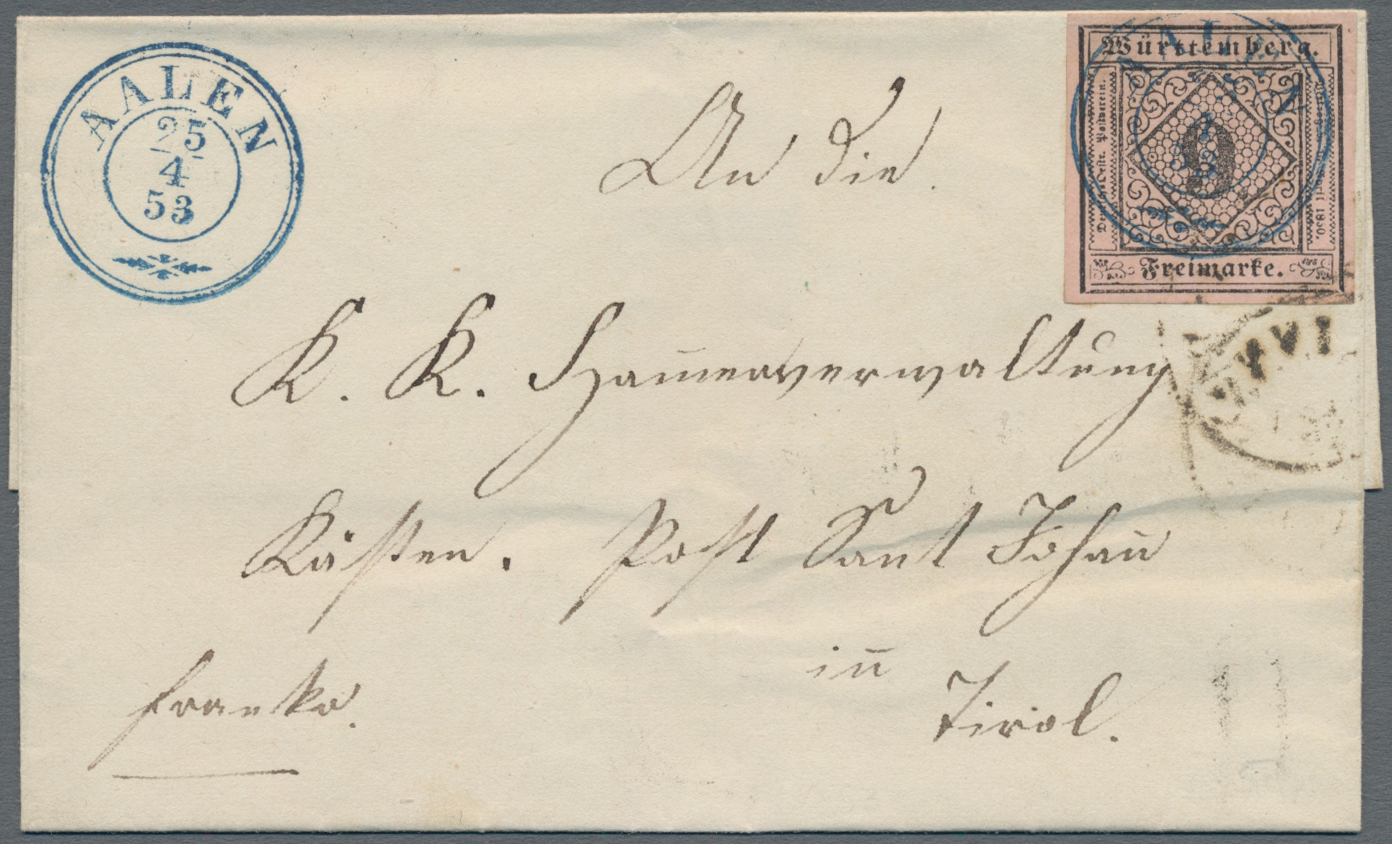 AALEN
25
4
53
Württemberg.
9
Freimarke.
An die
K. K. Ham̅erverwaltung
Kästen. Post Sant Johan̅
in̅
Tirol.
franko.